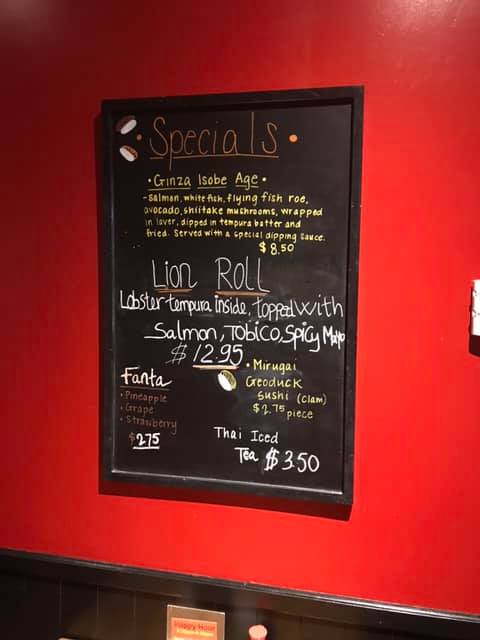 Specials
• Ginza Isobe Age •
- Salmon, white fish, flying fish roe,
avocado, shiitake mushrooms, wrapped
in laver, dipped in tempura batter and
fried. Served with a special dipping sauce.
$8.50
Lion Roll
Lobster tempura inside, topped with
Salmon, Tobico, Spicy Mayo
$12.95
• Mirugai
Geoduck
Sushi (clam)
$2.75 piece
Fanta
• Pineapple
• Grape
• Strawberry
$2.75
Thai Iced
Tea $3.50
Happy Hour